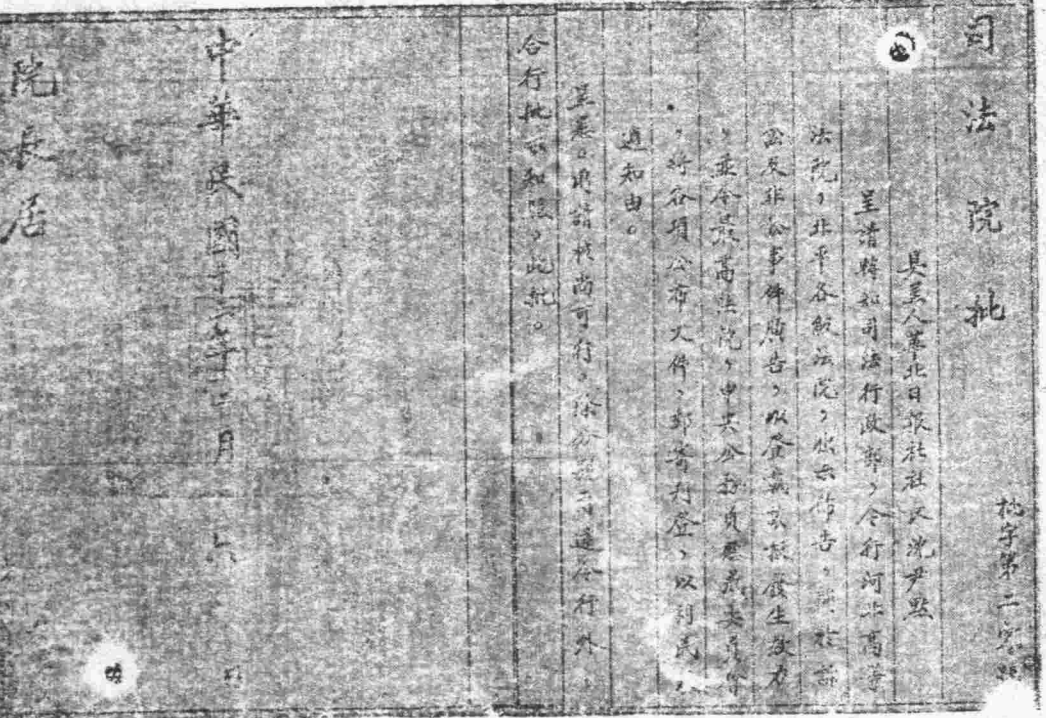 司法院批
批字第二
具呈人華北日報社社長沈尹默
呈請轉知司法行政部，令行河北高等
法院，北平各級法院，佈告，訴
訟及非訟事件廣告，以登載該報發生效力
，並令最高法院，中央公務員懲戒委員會
，將各項公布文件，郵寄刊登，以利民
通知由。
呈悉，所請核尚可行，除令行外，
合行批示知照，此批。
中華民國年月六
院長居